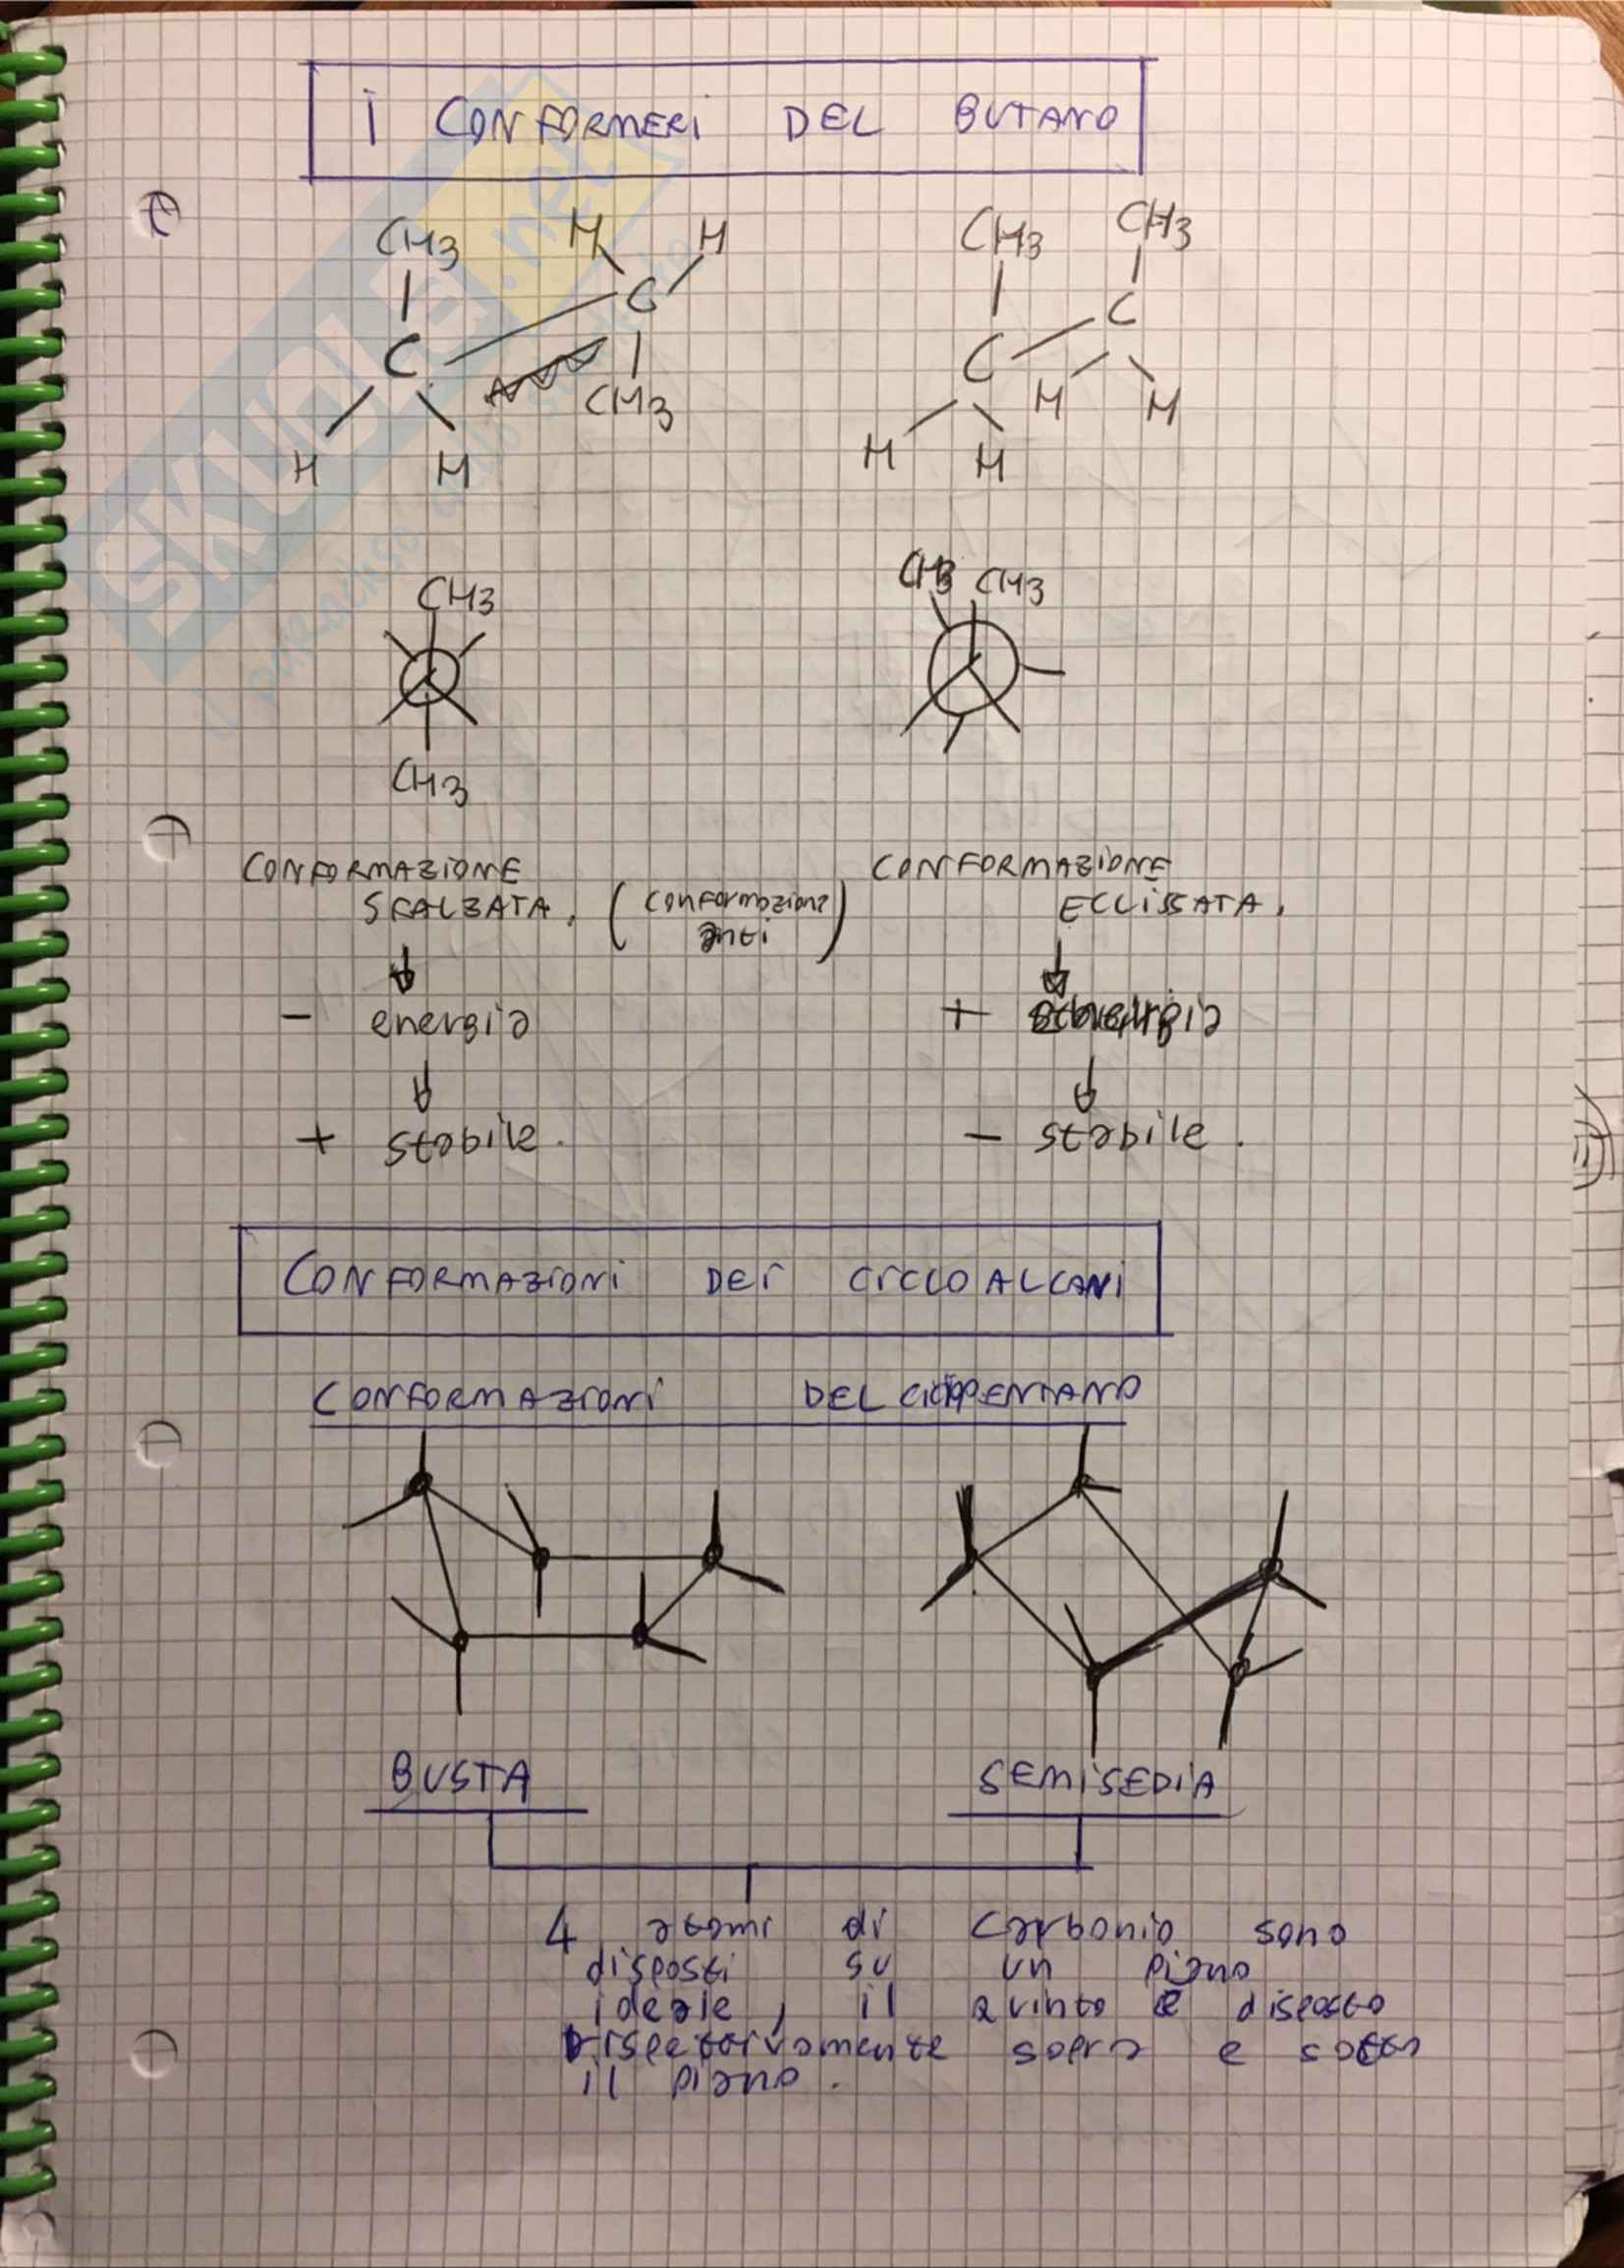 I CONFORMERI DEL BUTANO
CH3 H H
C
C
CH3
H H
CH3 CH3
C
C
H H
H H
CH3
CH3
CH3 CH3
CONFORMAZIONE
SFALZATA. (conformazione
anti)
↓
- energia
↓
+ stabile.
CONFORMAZIONE
ECLISSATA.
↓
+ energia
↓
- stabile.
CONFORMAZIONI DEI CICLOALCANI
CONFORMAZIONI DEL CICLOPENTANO
BUSTA
SEMISEDIA
4 atomi di carbonio sono
disposti su un piano
ideale, il quinto è disposto
rispettivamente sopra e sotto
il piano.
SKUOLA.net